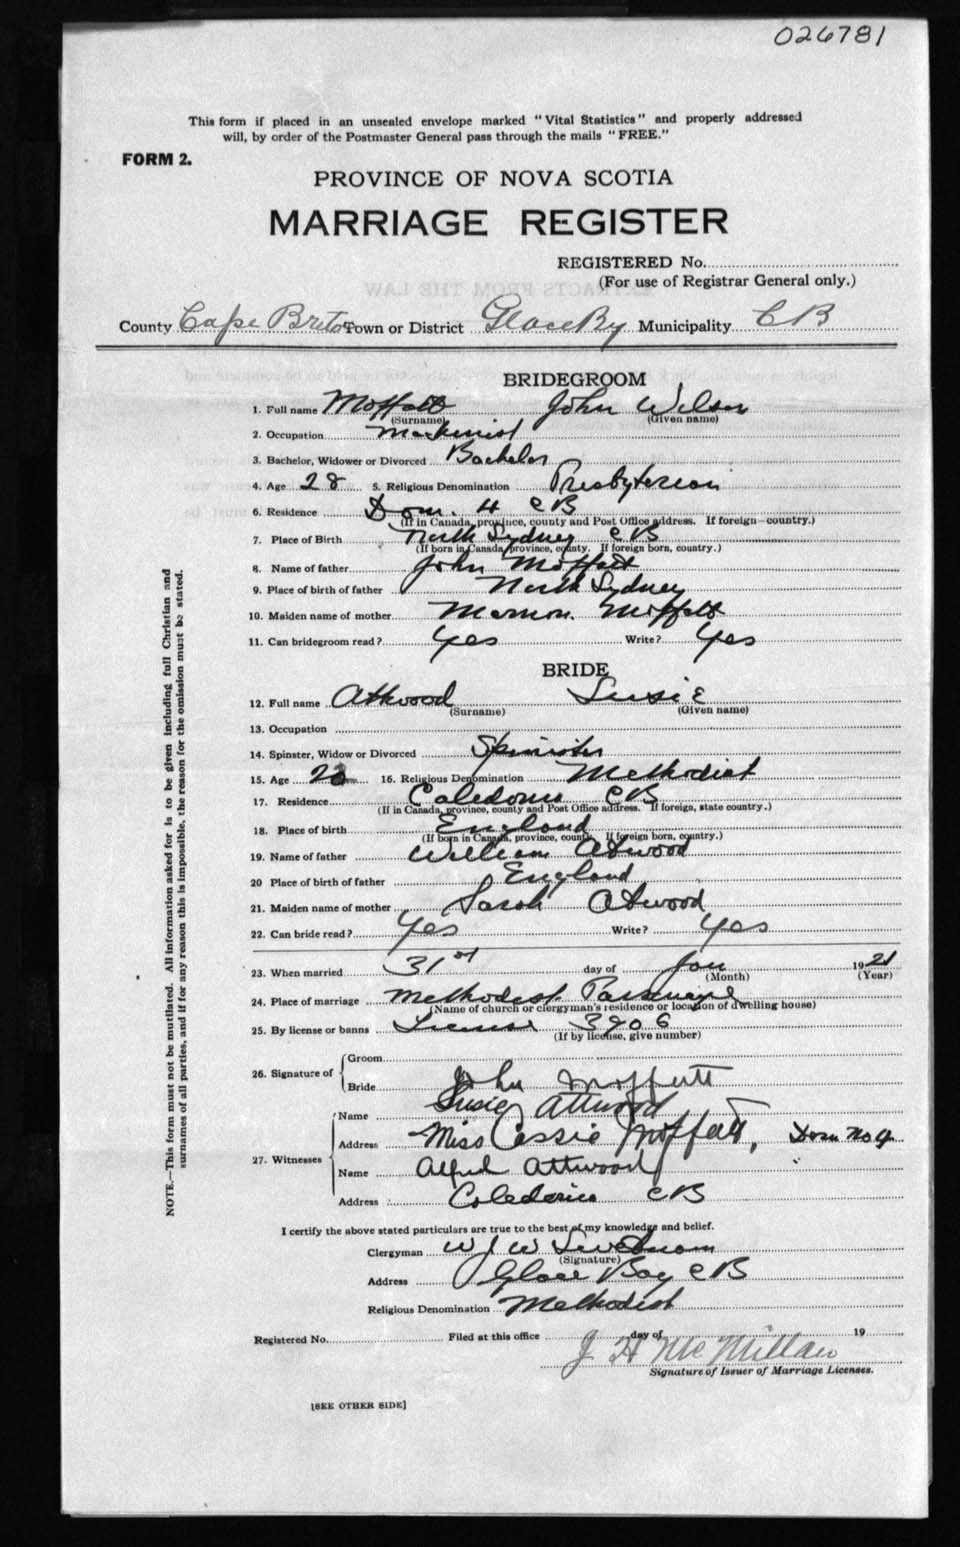 026781
This form if placed in an unsealed envelope marked "Vital Statistics" and properly addressed
will, by order of the Postmaster General pass through the mails "FREE."
FORM 2.
PROVINCE OF NOVA SCOTIA
MARRIAGE REGISTER
REGISTERED No.
(For use of Registrar General only.)
County Cape Breton Town or District Glace By Municipality C B
BRIDEGROOM
1. Full name Moffatt John Wilson
(Surname) (Given name)
2. Occupation Machinist
3. Bachelor, Widower or Divorced Bachelor
4. Age 28 5. Religious Denomination Presbyterian
6. Residence Dom. 4 C B
(If in Canada, province, county and Post Office address. If foreign—country.)
7. Place of Birth North Sydney C B
(If born in Canada, province, county. If foreign born, country.)
8. Name of father John Moffatt
9. Place of birth of father North Sydney
10. Maiden name of mother Moffatt
11. Can bridegroom read? Yes Write? Yes
BRIDE
12. Full name Attwood Susie
(Surname) (Given name)
13. Occupation
14. Spinster, Widow or Divorced Spinster
15. Age 16. Religious Denomination Methodist
17. Residence Caledonia C B
(If in Canada, province, county and Post Office address. If foreign, state country.)
18. Place of birth England
(If born in Canada, province, county. If foreign born, country.)
19. Name of father William Atwood
20 Place of birth of father England
21. Maiden name of mother Sarah Atwood
22. Can bride read? Yes Write? Yes
23. When married 31st day of Jan 1921
(Month) (Year)
24. Place of marriage Methodist Parsonage
(Name of church or clergyman's residence or location of dwelling house)
25. By license or banns License 3906
(If by license, give number)
26. Signature of Groom
Bride John Moffatt
Susie Attwood
27. Witnesses Name
Address Miss Cassie Moffatt, Dom No 4
Name Alfred Attwood
Address Caledonia C B
I certify the above stated particulars are true to the best of my knowledge and belief.
Clergyman W J W Swetnam
(Signature)
Address Glace Bay C B
Religious Denomination Methodist
Registered No. Filed at this office day of 19
J H McMillan
Signature of Issuer of Marriage Licenses.
[SEE OTHER SIDE]
NOTE.—This form must not be mutilated. All information asked for is to be given including full Christian and
surnames of all parties, and if for any reason this is impossible, the reason for the omission must be stated.